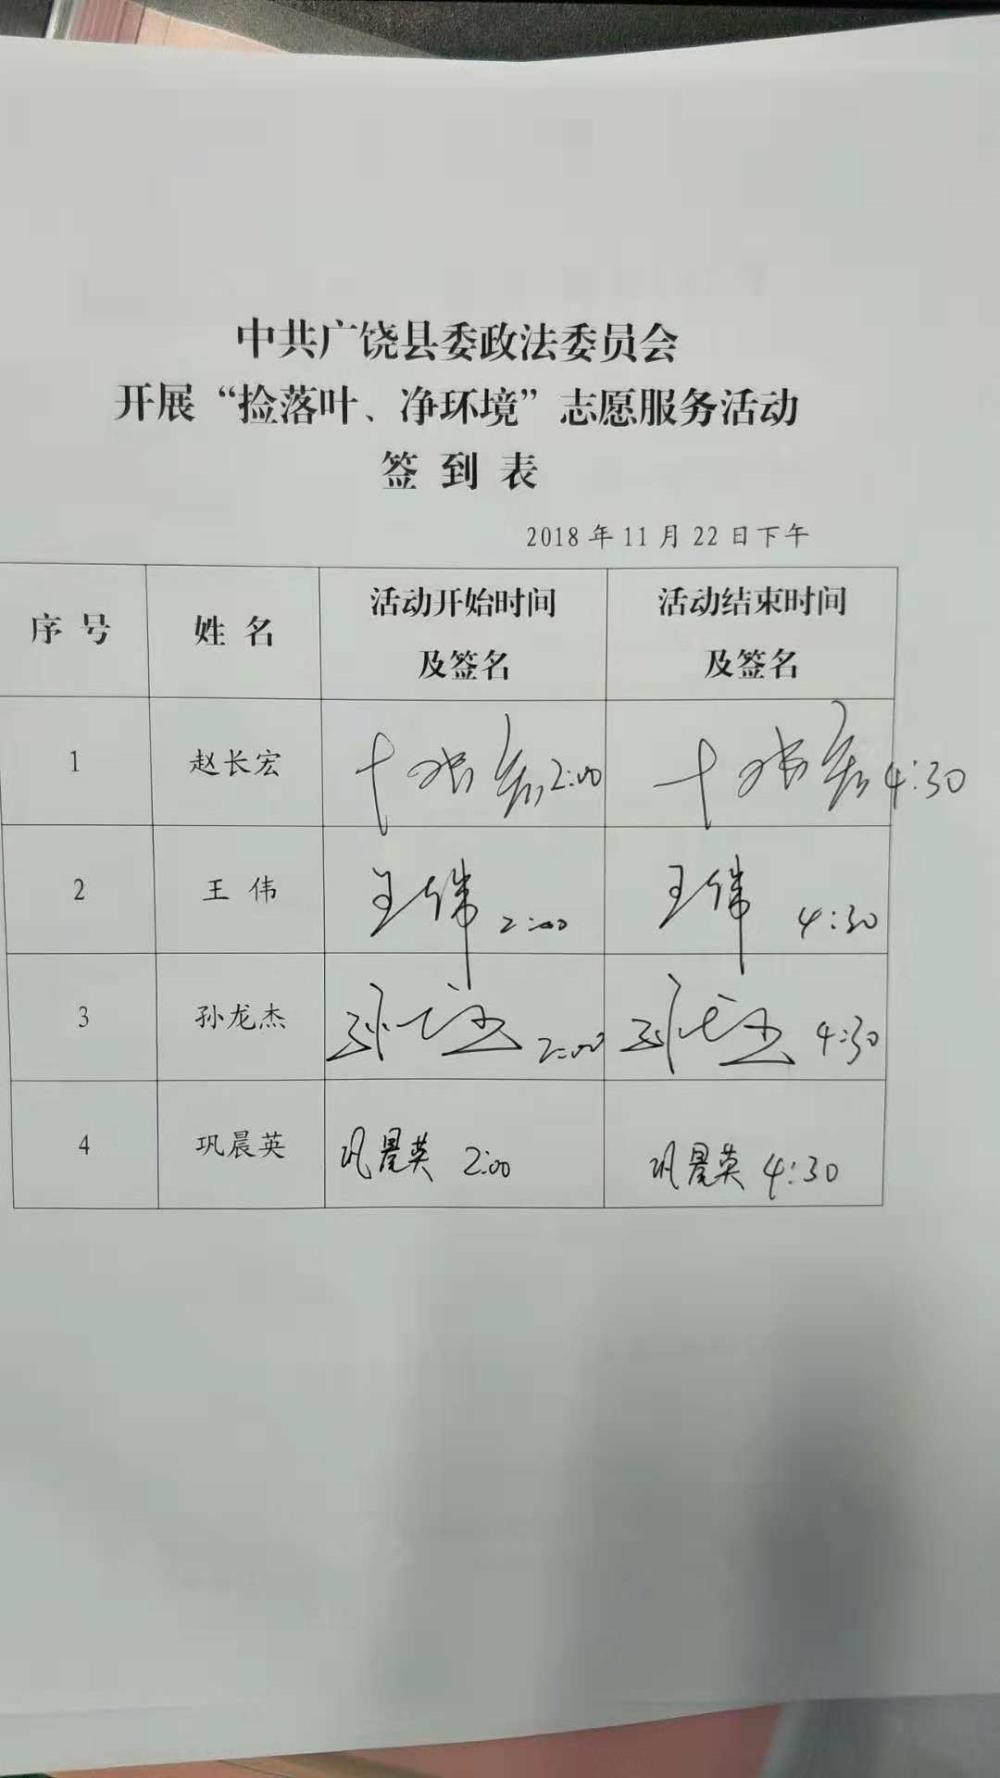 中共广饶县委政法委员会
开展“捡落叶、净环境”志愿服务活动
签到表
2018年11月22日下午
序号 姓名 活动开始时间及签名 活动结束时间及签名
1 赵长宏 赵长宏 2:00 赵长宏 4:30
2 王伟 王伟 2:00 王伟 4:30
3 孙龙杰 孙龙杰 2:00 孙龙杰 4:30
4 巩晨英 巩晨英 2:00 巩晨英 4:30